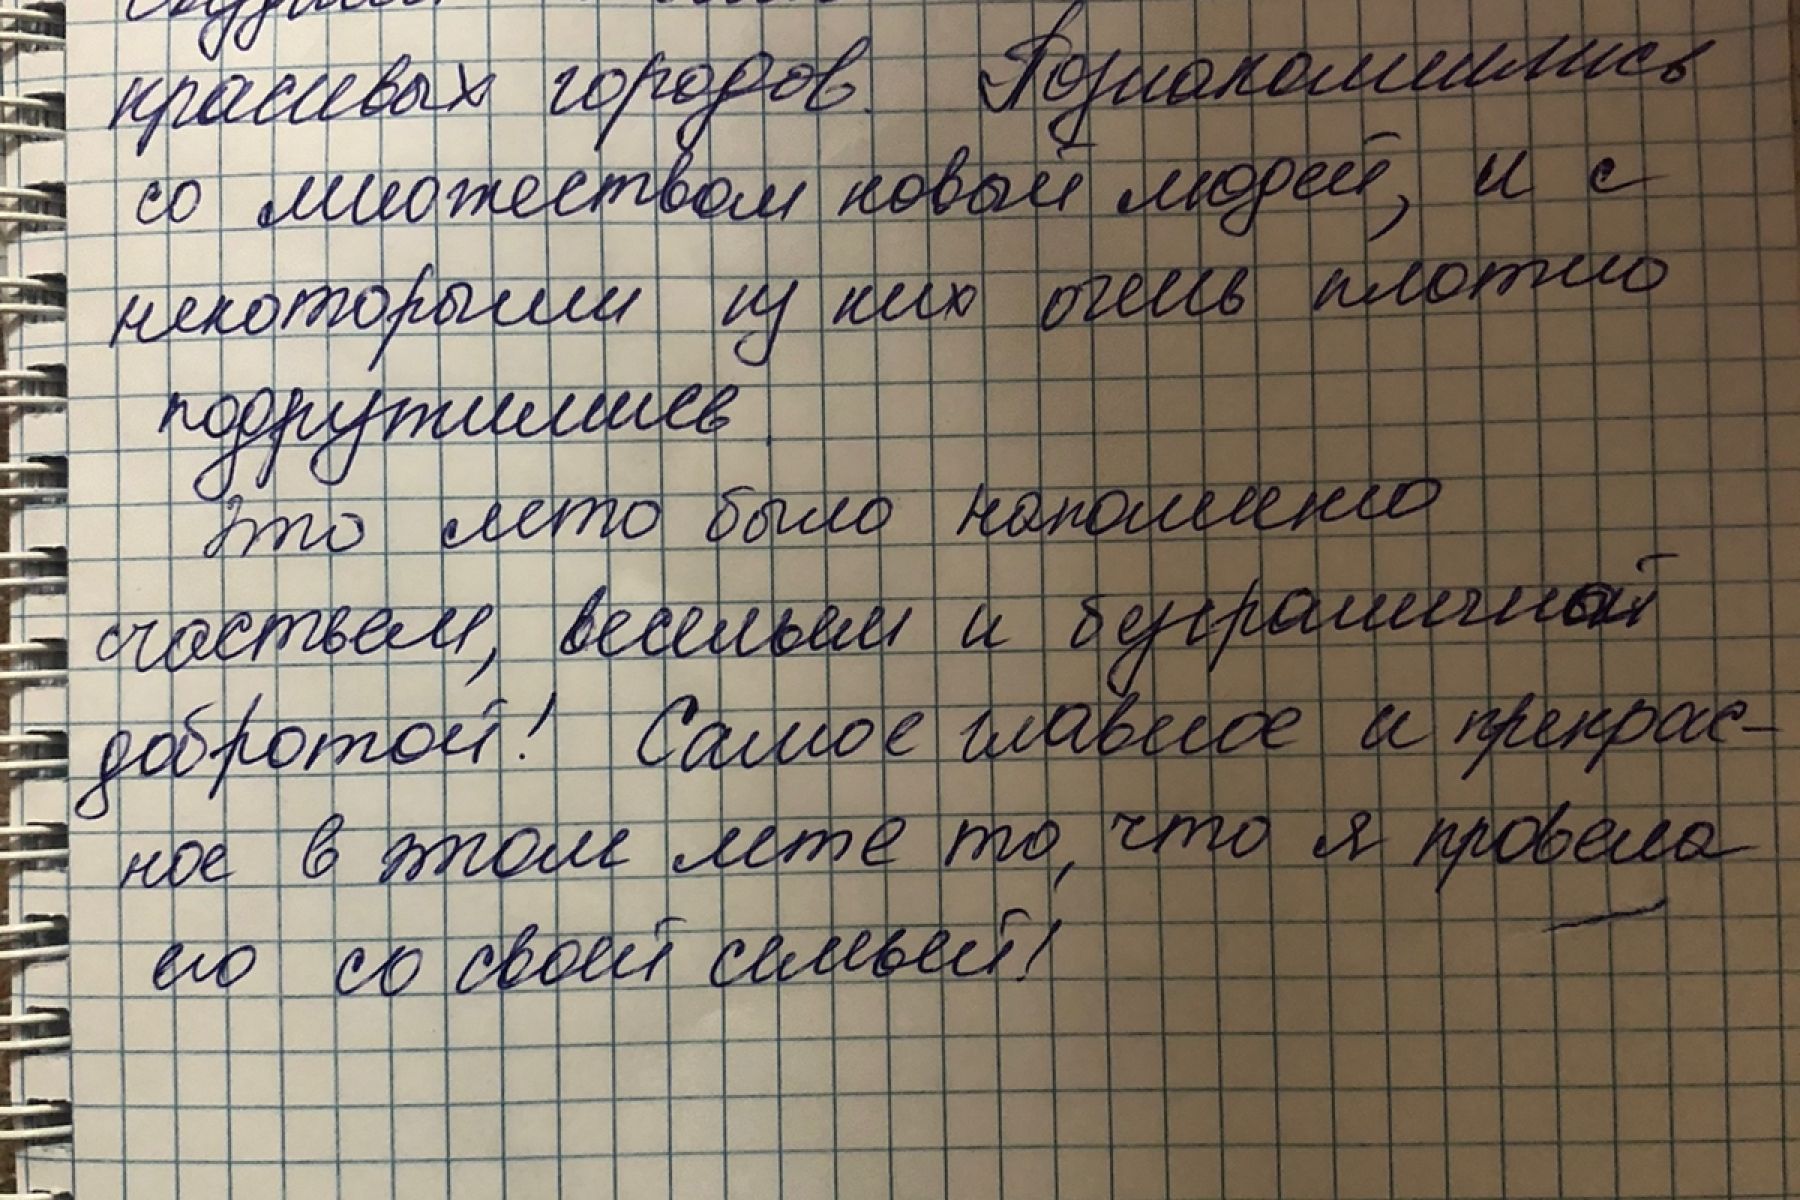 красивых городов. Познакомились
со множеством новый людей, и с
некоторыми из них очень плотно
подружились.
Это лето было наполнено
счастьем, весельем и безграничной
добротой! Самое главное и прекрас-
ное в этом лете то, что я провела
его со своей семьей!